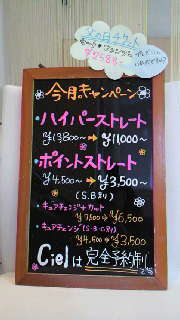 父の日チケット
¥7588
今月のキャンペーン
・ハイパーストレート
¥13,800〜➡¥11,000〜
・ポイントストレート
¥4,500〜➡¥3,500〜
(S.B別)
・キュアチェンジ+カット
¥7,500➡¥6,500
・キュアチェンジ(S・B込)
¥4,500➡¥3,500
Cielは完全予約制
です